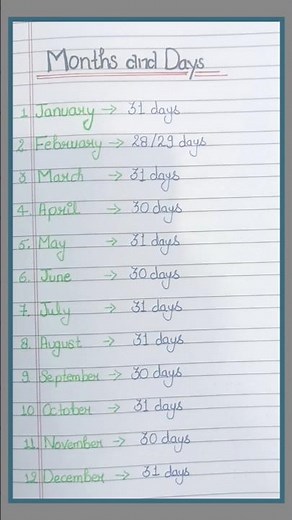 Months and Days
1. January → 31 days
2. February → 28/29 days
3. March → 31 days
4. April → 30 days
5. May → 31 days
6. June → 30 days
7. July → 31 days
8. August → 31 days
9. September → 30 days
10. October → 31 days
11. November → 30 days
12. December → 31 days